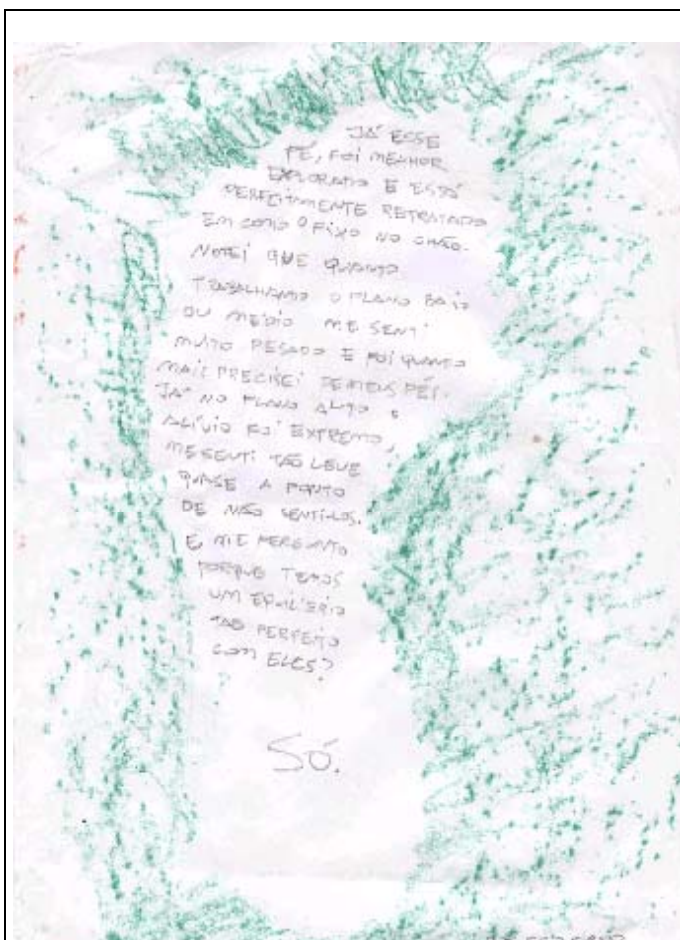 JÁ ESSE
PÉ, FOI MELHOR
EXPLORADO E ESTÁ
PERFEITAMENTE RETRATADO
EM COMO O FIXO NO CHÃO.
NOTEI QUE QUANTO
TRABALHANDO O PLANO BAIO
OU MÉDIO ME SENTI
MUITO PESADO E FOI QUANDO
MAIS PRECISEI DE MEUS PÉS.
JÁ NO PLANO ALTO O
ALÍVIO FOI EXTREMO,
ME SENTI TÃO LEVE
QUASE A PONTO
DE NÃO SENTÍ-LOS.
E ME PERGUNTO
PORQUE TEMOS
UM EQUILÍBRIO
TÃO PERFEITO
COM ELES?
SÓ.